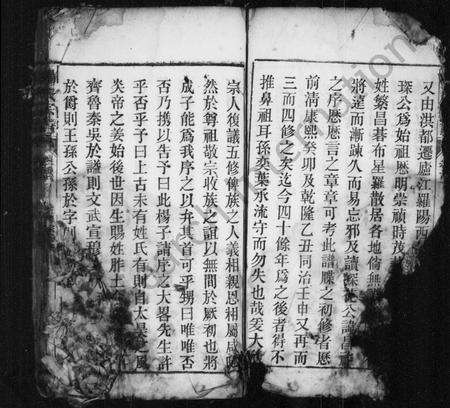 又由洪都遷廬江羅陽西
琛公爲始祖歷明崇禎時茂
姓繁昌碁布星羅散居各地倘無
將遠而漸疎久而易忘耶及讀琛公譜
之序歷歷言之章章可考此譜牒之初修者歷
前淸康熙癸卯及乾隆乙丑同治壬申又再而
三而四修之矣迄今四十餘年爲之後者得不
推鼻祖耳孫奕葉承流守而勿失也哉爰大
宗人復議五修俾族之人義相親恩相屬咸
然於尊祖敬宗收族之誼以無間於厥初也將
成子能爲我序之以弁其首可乎甥曰唯唯否
否乃攜以吿予曰此楊子請序之大畧先生許
乎否乎予曰上古未有姓氏有則自太昊之風
炎帝之姜始後世因生賜姓胙土
齊魯秦吳於謚則文武宣穆
於爵則王孫公孫於字則